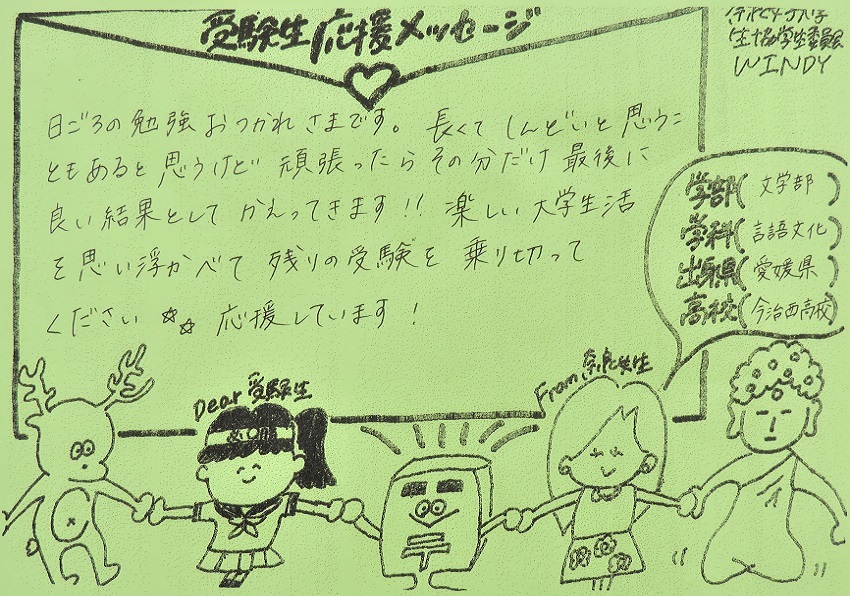 受験生応援メッセージ
生協学生委員会
WINDY
日ごろの勉強おつかれさまです。長くてしんどいと思うこ
ともあると思うけど頑張ったらその分だけ最後に
良い結果としてかえってきます!!楽しい大学生活
を思い浮かべて残りの受験を乗り切って
ください☆☆応援しています!
学部(文学部)
学科(言語文化)
出身県(愛媛県)
高校(今治西高校)
Dear 受験生
From 奈良女生
め〇〒